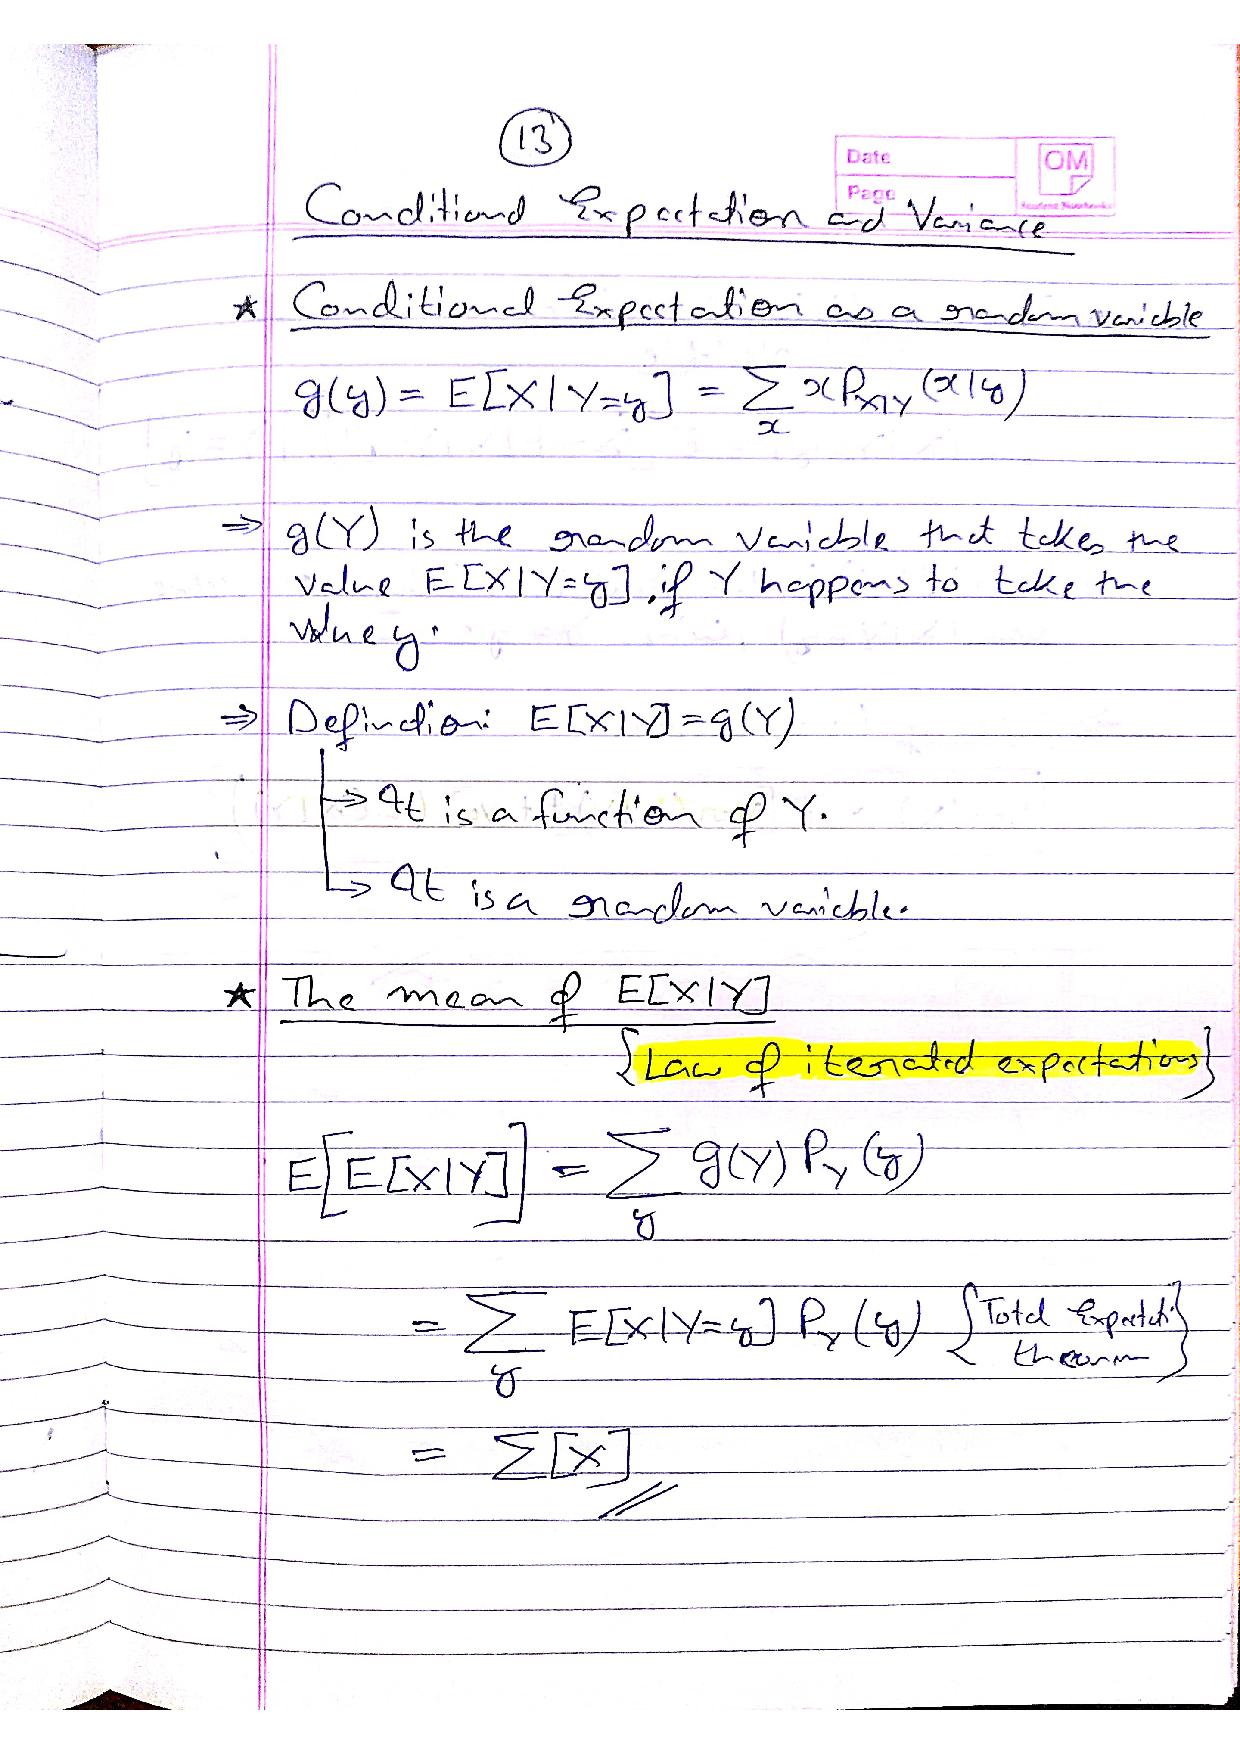 13
Date
OM
Page
Conditional Expectation and Variance
★ Conditional Expectation as a random variable
g(y) = E[X|Y=y] = ∑ₓ x P_{X|Y}(x|y)
⇒ g(Y) is the random variable that takes the
value E[X|Y=y], if Y happens to take the
value y.
⇒ Definition: E[X|Y] = g(Y)
→ It is a function of Y.
→ It is a random variable.
★ The mean of E[X|Y]
{Law of iterated expectations}
E[E[X|Y]] = ∑_y g(Y) P_Y(y)
= ∑_y E[X|Y=y] P_Y(y) {Total Expectati
theorem}
= Σ[X]